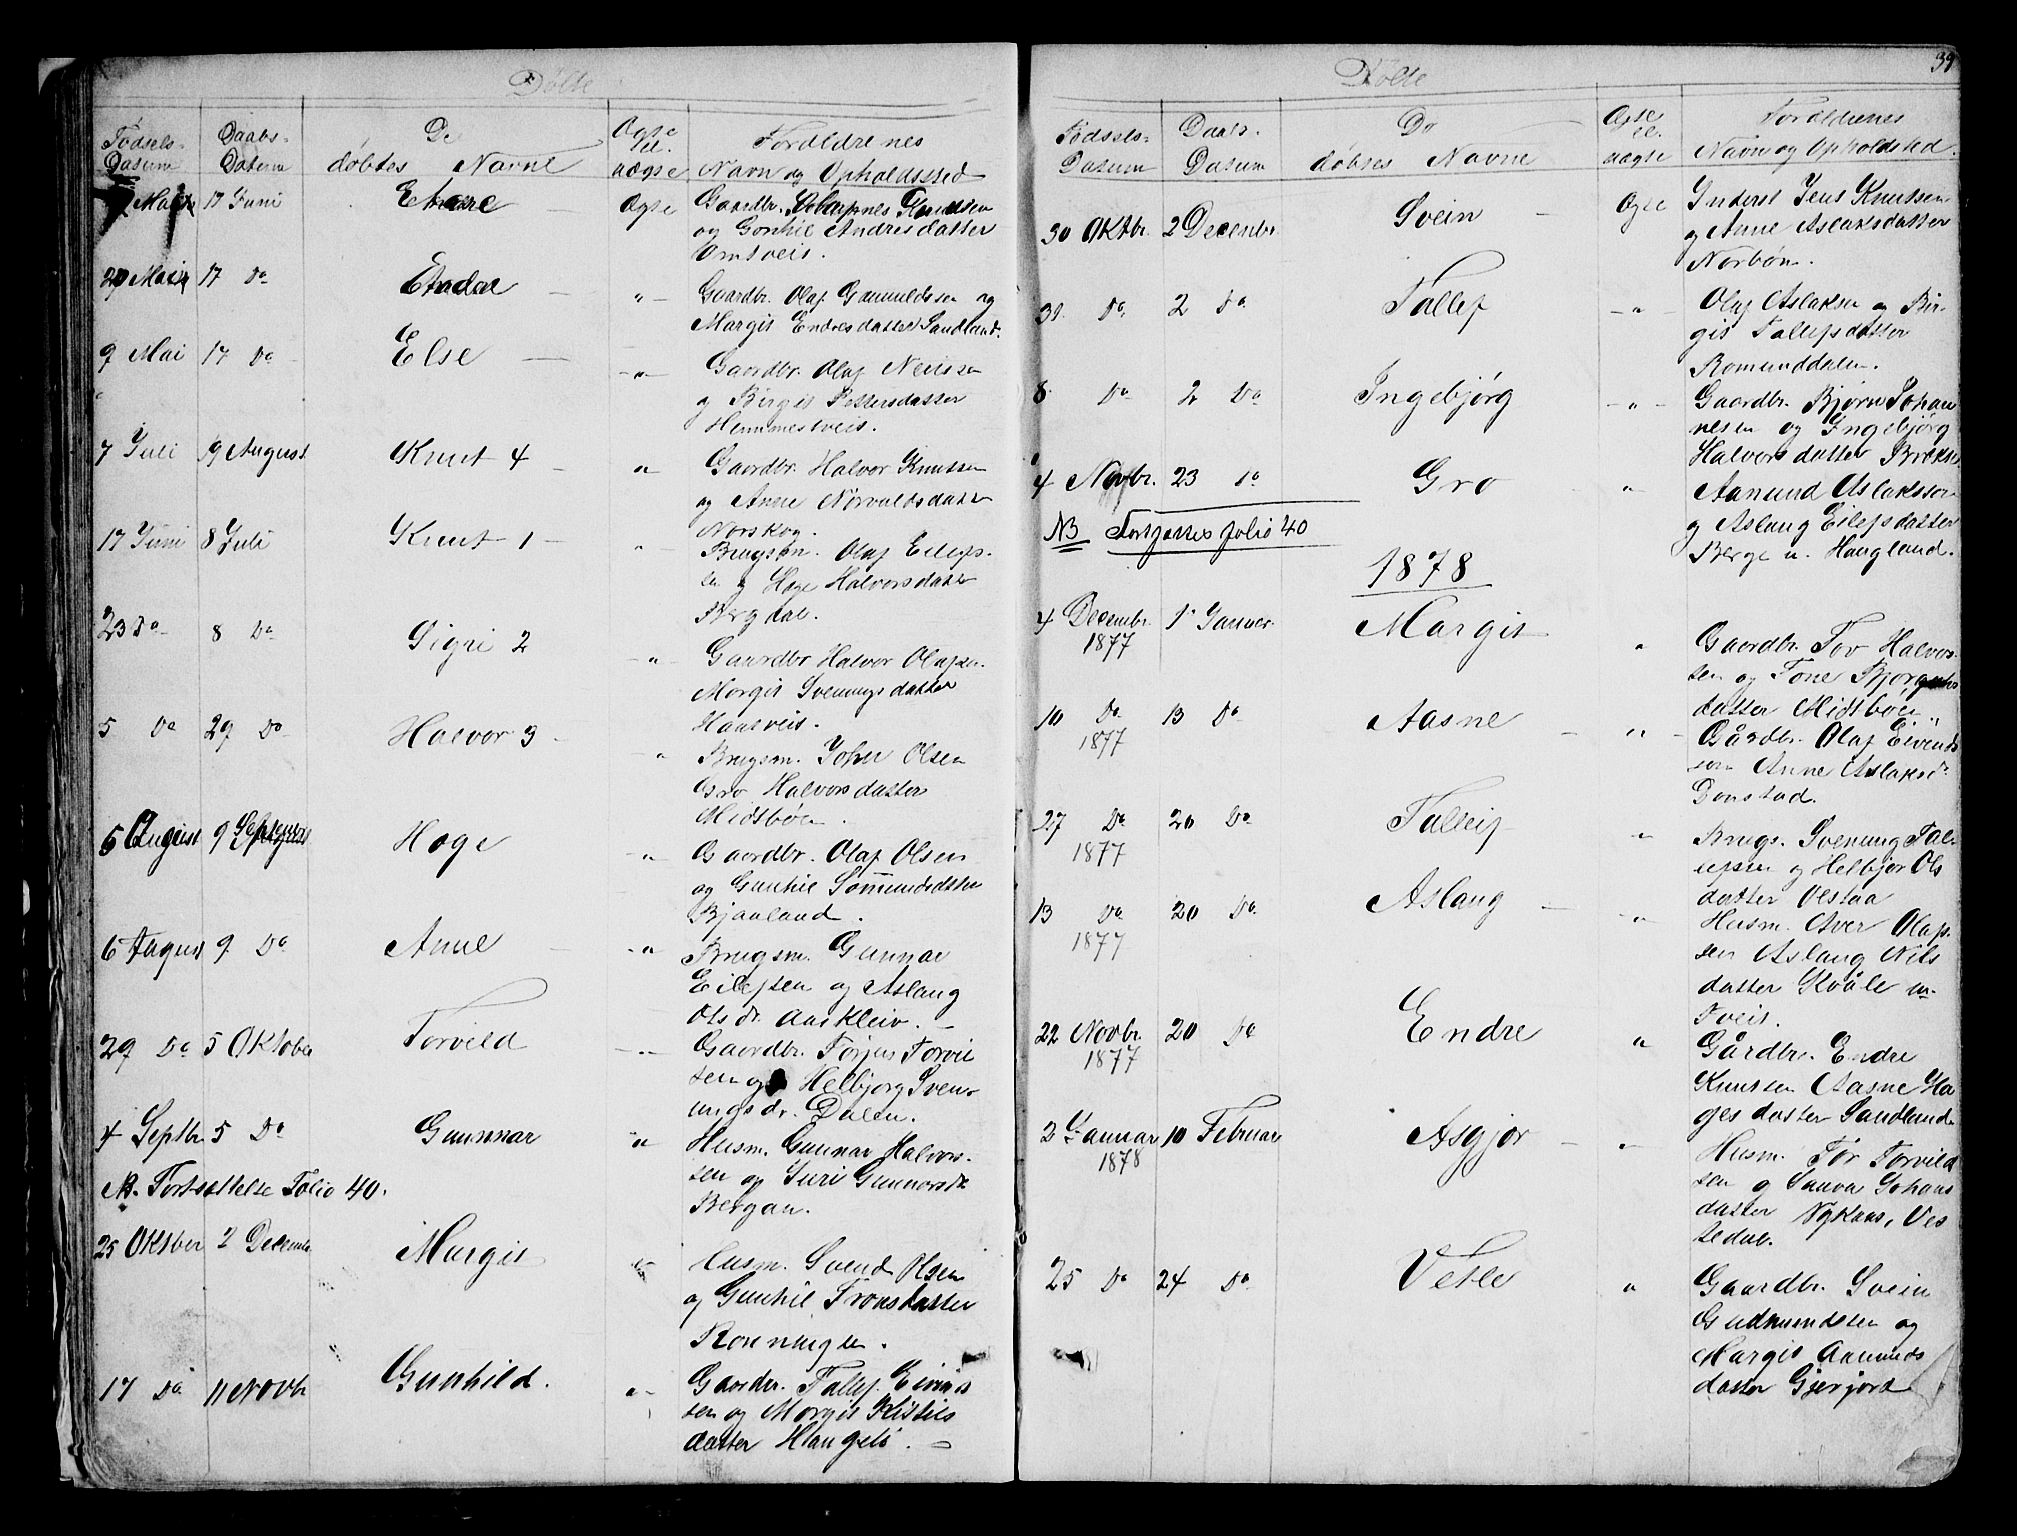 Døbte
Fødsels-
Datum
Daabs-
Datum
De
døbtes Navne
Ægte
el.
uægte
Forældrenes
Navn og Opholdssted
Mai 17 Juni Endre Ægte Gaardbr.
og Gonhil Andresdatter
Omtveit.
29 Mai 17 Do Endre " Gaardbr. Olaf Gamuldssen og
Margit Endresdatter Sandland.
9 Mai 17 Do Else " Gaardbr. Olaf Neilssen
og Birgit Pettersdatter
Hemmestveit.
7 Juli 19 August Knut 4 " Gaardbr. Halvor Knutssen
og Anne Norvaldsdatter
Norskog.
17 Juni 8 Juli Knut 1 " Brugsm. Olaf Eilefs-
sen og Hæge Halvorsdatter
Bergdal.
23 Do 8 Do Sigri 2 " Gaardbr Halvor Olafsen.
Margit Sveningsdatter
Haatveit.
5 Do 29 Do Halvor 3 " Brugsm. Joher Olsen
Gro Halvorsdatter
Midtbøen.
5 August 9 Septembr Hæge " Gaardbr. Olaf Olsen
og Gunhil Sømundsdatter
Bjaaland.
6 August 9 Do Anne " Brugsm. Gunnar
Eilefsen og Aslaug
Olsdr. Aarkleiv.
29 Do 5 Oktober Torvild " Gaardbr. Torjus Torvil
sen og Helbjorg Sven-
ungsdr. Dalen.
4 Septbr. 5 Do Gunnnar " Husm. Gunnar Halvors-
sen og Guri Gunnarsdr
Bergan.
NB. Fortsættelse Folio 40.
25 Oktber 2 Decembr Margit " Husm. Svend Olsen
og Gunhil Tronsdatter
17 Do 11 Novbr Gunhild. " Gaardbr. Tallef Eivinds
sen og Margit Kittils
datter Haugeto.
39
Døbte
Fødsels-
Datum
Daabs-
Datum
De
døbtes Navne
Ægte
el.
uægte
Forældrenes
Navn og Opholdsted.
30 Oktbr. 2 Decembr. Svein Ægte Inderst Jens Knutssen
og Anne Aslaksdatter
Norbøn.
31. Do. 2 Do Tallef " Olaf Aslaksen og Bir-
git Tallefsdatter
Romunddalen.
8 Do 2 Do Ingebjørg " Gaardbr. Bjørn Johan
nesen og Ingebjørg
Halvorsdatter
4 Novbr. 23 Do Gro " Aamund Aslakssen
og Aslaug Eilefsdatter
Berge u. Haugland.
NB Fortsættes folio 40
1878
4 Decembr. 1877 1. Januar. Margit " Gaardbr. Tov Halvors-
sen og Tone
datter Midtbøen
10 Do 1877 13 Do Aasne " Gårdbr. Olaf Eivends
søn Anne Aslaksdr
Donstad.
27 Do 1877 20 Do Talleif " Brugs. Svenung Tal-
lefsen og Helbjør Ols
datter Olstaa
13 Do 1877 20 Do Aslaug " Husm. Aver Olaf-
sen Aslaug Nils
datter Kvåle u.
Tveit.
22 Novbr. 1877 20 Do Endre " Gårdbr. Endre
Knutsen Aasne Ha
gesdatter Sandland
2 Januar 1878 10 Februar Asgjør " Husm. Tør Torvild
sen og Sauva Johans
datter Nykaas, Ves
tedal.
25 Do 24 Do Vetle " Gaardbr. Svein
Gudmundsen og
Margit Aamunds
datter Gjerjord